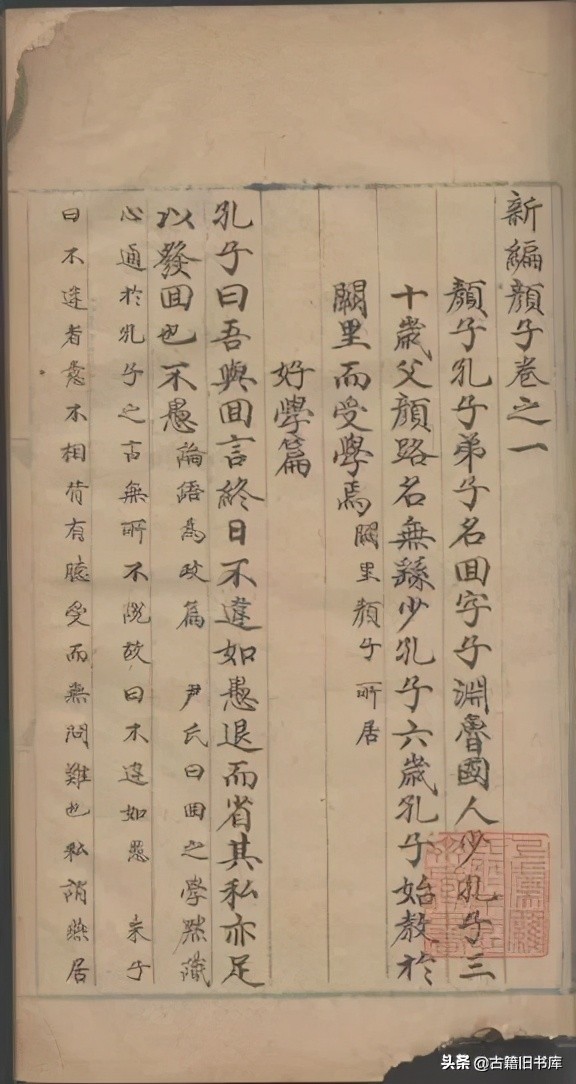 新編顔子卷之一
顔子孔子弟子名回字子淵魯國人少孔子三
十歳父顔路名無繇少孔子六歳孔子始教於
闕里而受學焉闕里顔子所居
好學篇
孔子曰吾與回言終日不違如愚退而省其私亦足
以發回也不愚論語為政篇 尹氏曰回之學黙識
心通於孔子之言無所不說故曰不違如愚 朱子
曰不違者意不相背有聴受而無問難也私謂燕居
头条@古籍旧书库